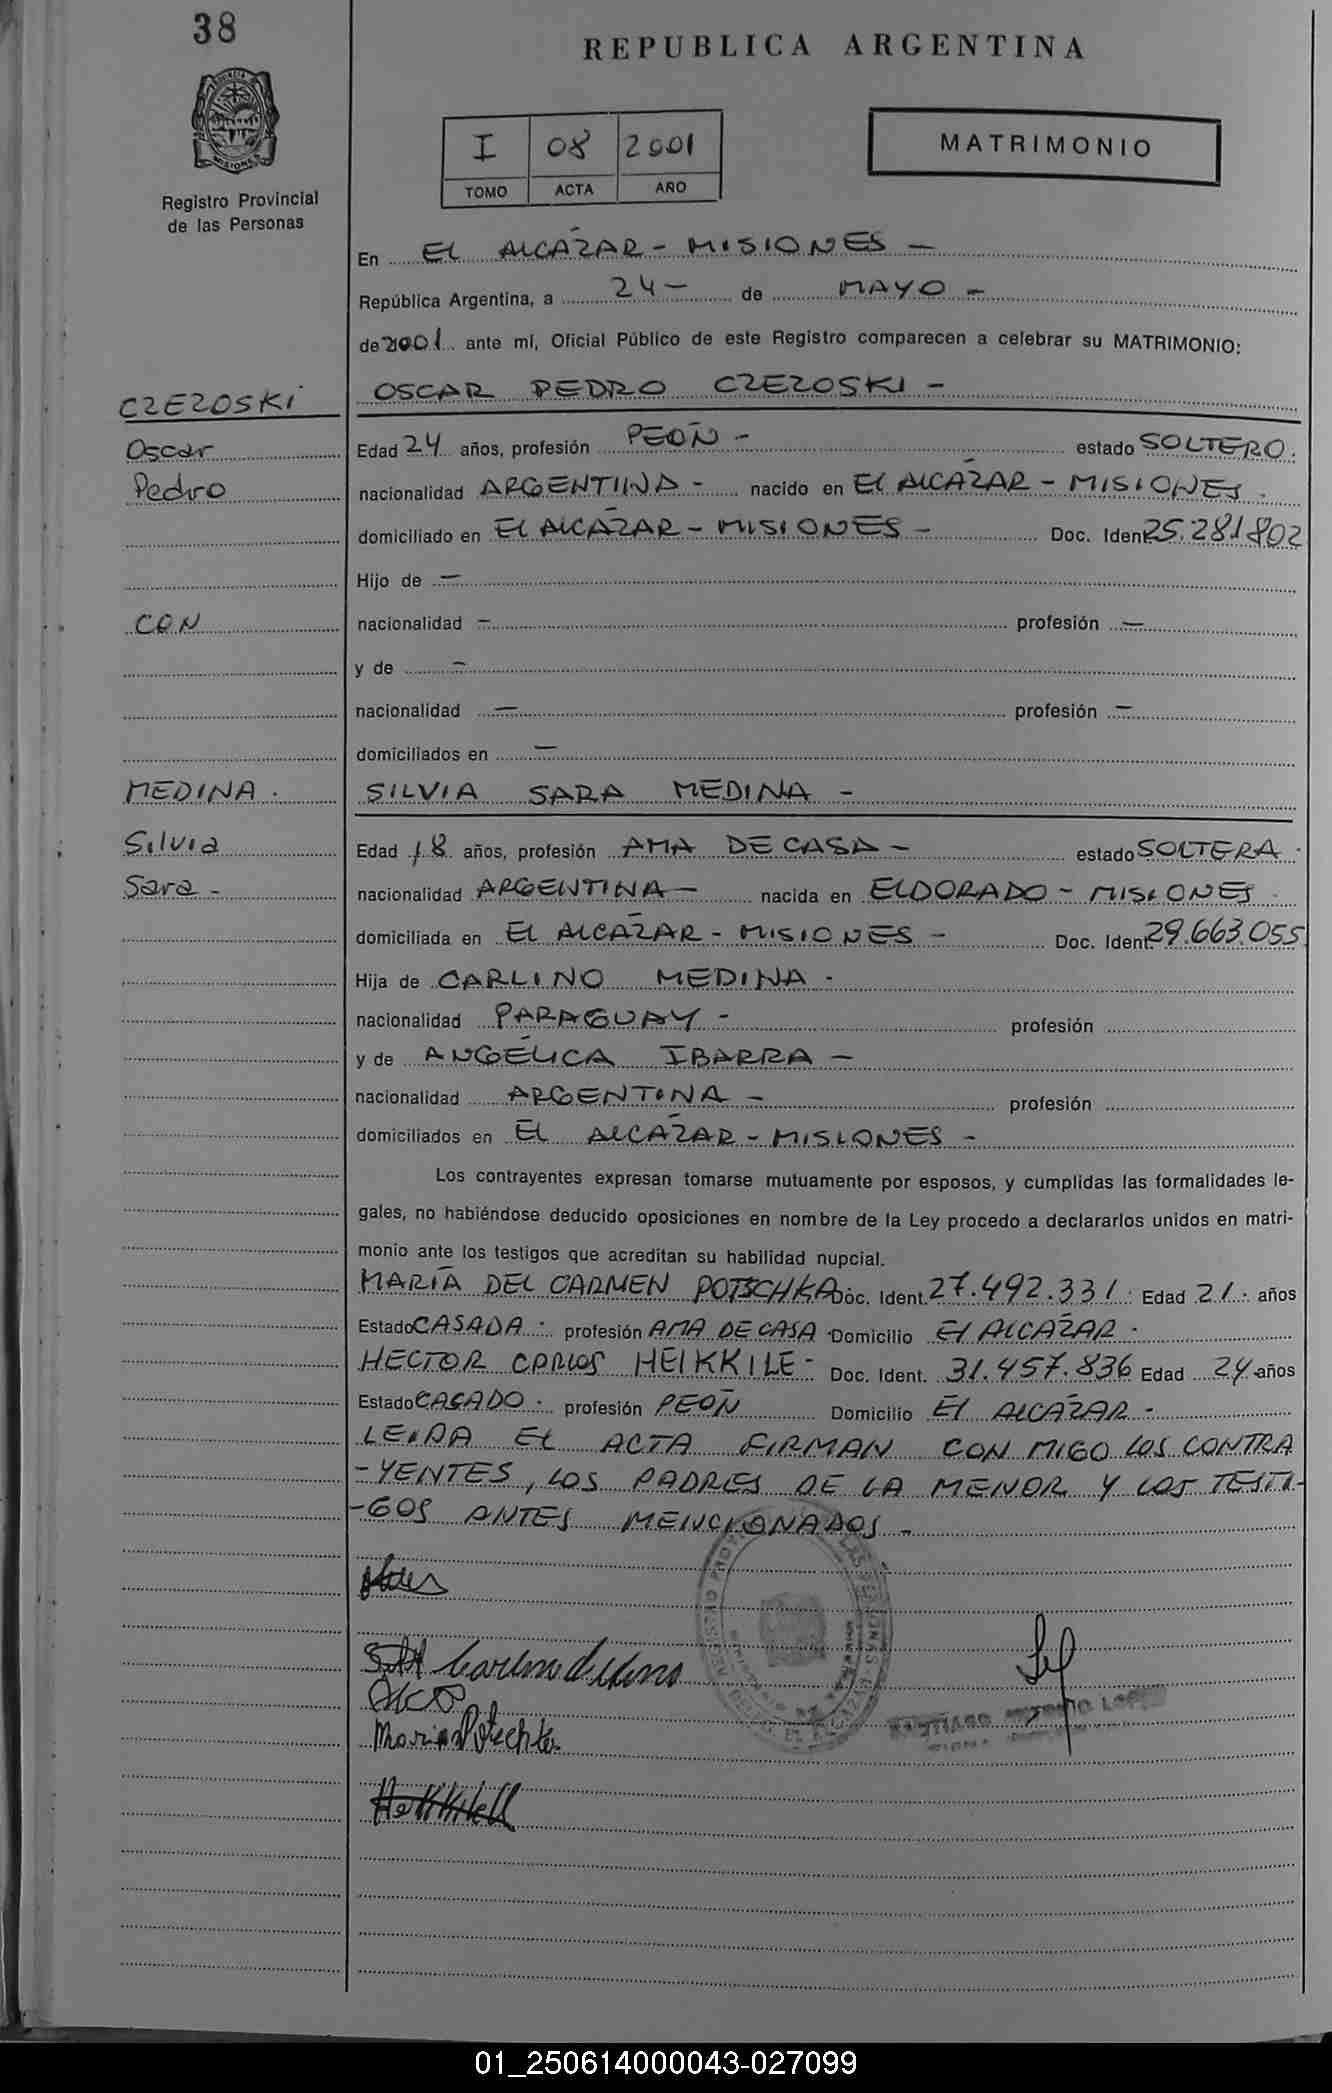 38
REPUBLICA ARGENTINA
MISIONES
Registro Provincial
de las Personas
I 08 2001
TOMO ACTA AÑO
MATRIMONIO
En EL ALCÁZAR - MISIONES -
República Argentina, a 24 - de MAYO -
de 2001 ante mí, Oficial Público de este Registro comparecen a celebrar su MATRIMONIO:
CZEZOSKI
OSCAR PEDRO CZEZOSKI -
Oscar
Edad 24 años, profesión PEÓN - estado SOLTERO.
Pedro
nacionalidad ARGENTINA - nacido en El ALCÁZAR - MISIONES -
domiciliado en El ALCÁZAR - MISIONES - Doc. Ident. 25.281.802
Hijo de -
CON
nacionalidad - profesión -
y de -
nacionalidad - profesión -
domiciliados en -
MEDINA.
SILVIA SARA MEDINA -
Silvia
Edad 18 años, profesión AMA DE CASA - estado SOLTERA.
Sara -
nacionalidad ARGENTINA - nacida en ELDORADO - MISIONES -
domiciliada en EL ALCÁZAR - MISIONES - Doc. Ident. 29.663.055
Hija de CARLINO MEDINA -
nacionalidad PARAGUAY - profesión
y de ANGÉLICA IBARRA -
nacionalidad ARGENTINA - profesión
domiciliados en EL ALCÁZAR - MISIONES -
Los contrayentes expresan tomarse mutuamente por esposos, y cumplidas las formalidades le-
gales, no habiéndose deducido oposiciones en nombre de la Ley procedo a declararlos unidos en matri-
monio ante los testigos que acreditan su habilidad nupcial.
MARÍA DEL CARMEN POTSCHKA Doc. Ident. 27.492.331 Edad 21 años
Estado CASADA. profesión AMA DE CASA Domicilio El ALCÁZAR -
HECTOR CARLOS HEIKKILE - Doc. Ident. 31.457.836 Edad 24 años
Estado CASADO. profesión PEÓN Domicilio El ALCÁZAR -
LEIDA EL ACTA FIRMAN CONMIGO LOS CONTRA
-YENTES, LOS PADRES DE LA MENOR Y LOS TESTI-
-GOS ANTES MENCIONADOS -
SANTIAGO ANTONIO
01_250614000043-027099